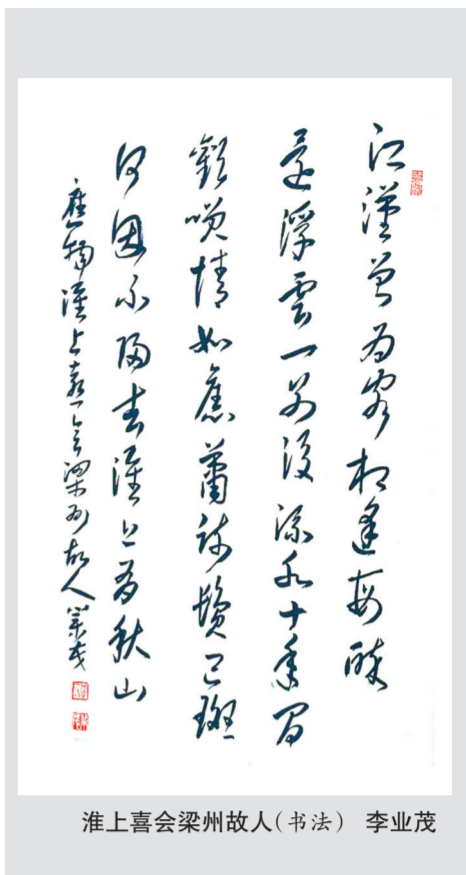 江漢曾为客相逢每醉
還浮雲一別後流水十年間
歡笑情如舊蕭疏鬢已斑
何因不歸去淮上有秋山
應物淮上喜會梁州故人 業茂
淮上喜会梁州故人(书法) 李业茂